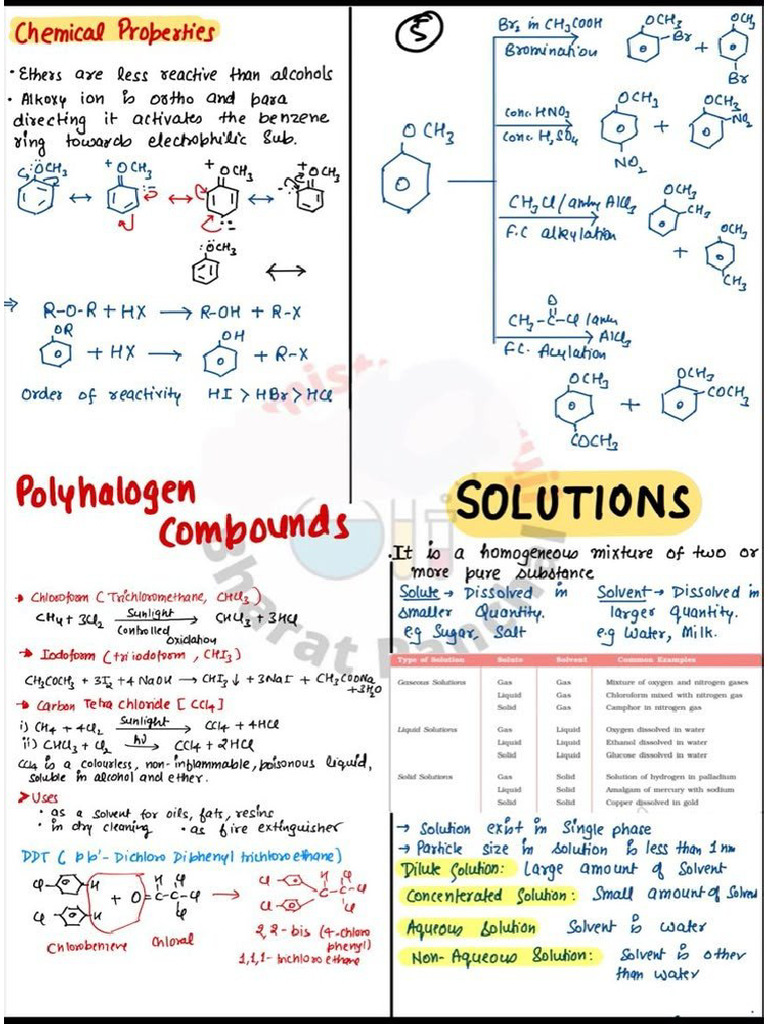 Chemical Properties
• Ethers are less reactive than alcohols
• Alkoxy ion is ortho and para
directing it activates the benzene
ring towards electrophilic Sub.
ÖCH3 ↔ + OCH3 ↔ + OCH3 ↔ + OCH3
ÖCH3
↔
⇒ R-O-R + HX → R-OH + R-X
OR + HX → OH + R-X
Order of reactivity HI > HBr > HCl
5
OCH3
Br2 in CH3COOH
Bromination
OCH3 Br + OCH3 Br
conc. HNO3
conc. H2SO4
OCH3 NO2 + OCH3 NO2
CH3Cl / anhy AlCl3
F.C alkylation
OCH3 CH3 + OCH3 CH3
O
CH3-C-Cl / anhy
AlCl3
F.C. Acylation
OCH3 COCH3 + OCH3 COCH3
Polyhalogen
Compounds
→ Chloroform (Trichloromethane, CHCl3)
CH4 + 3Cl2 Sunlight → CHCl3 + 3HCl
Controlled
oxidation
→ Iodoform (triiodoform, CHI3)
CH3COCH3 + 3I2 + 4NaOH → CHI3↓ + 3NaI + CH3COONa
+ 3H2O
→ Carbon Tetra chloride [CCl4]
i) CH4 + 4Cl2 Sunlight → CCl4 + 4HCl
ii) CHCl3 + Cl2 hν → CCl4 + 2HCl
CCl4 is a colourless, non-inflammable, poisonous liquid,
soluble in alcohol and ether.
➤ Uses
• as a solvent for oils, fats, resins
• in dry cleaning • as fire extinguisher
DDT (pp'-Dichloro Diphenyl trichloroethane)
Cl H
Cl H
+ O=C-C-Cl
H Cl
Cl
→ Cl Cl C-C-Cl Cl Cl
Chlorobenzene Chloral
2,2-bis (4-chloro
phenyl)
1,1,1-trichloroethane
SOLUTIONS
• It is a homogeneous mixture of two or
more pure substance
Solute → Dissolved in
smaller Quantity.
eg Sugar, Salt
Solvent → Dissolved in
larger quantity.
e.g Water, Milk.
Type of Solution Solute Solvent Common Examples
Gaseous Solutions Gas Gas Mixture of oxygen and nitrogen gases
Liquid Gas Chloroform mixed with nitrogen gas
Solid Gas Camphor in nitrogen gas
Liquid Solutions Gas Liquid Oxygen dissolved in water
Liquid Liquid Ethanol dissolved in water
Solid Liquid Glucose dissolved in water
Solid Solutions Gas Solid Solution of hydrogen in palladium
Liquid Solid Amalgam of mercury with sodium
Solid Solid Copper dissolved in gold
→ Solution exist in Single phase
→ Particle size in solution is less than 1 nm
Dilute Solution: Large amount of Solvent
Concenterated Solution: Small amount of Solvent
Aqueous Solution Solvent is water
Non-Aqueous Solution: Solvent is other
than water
Bharat Panchal